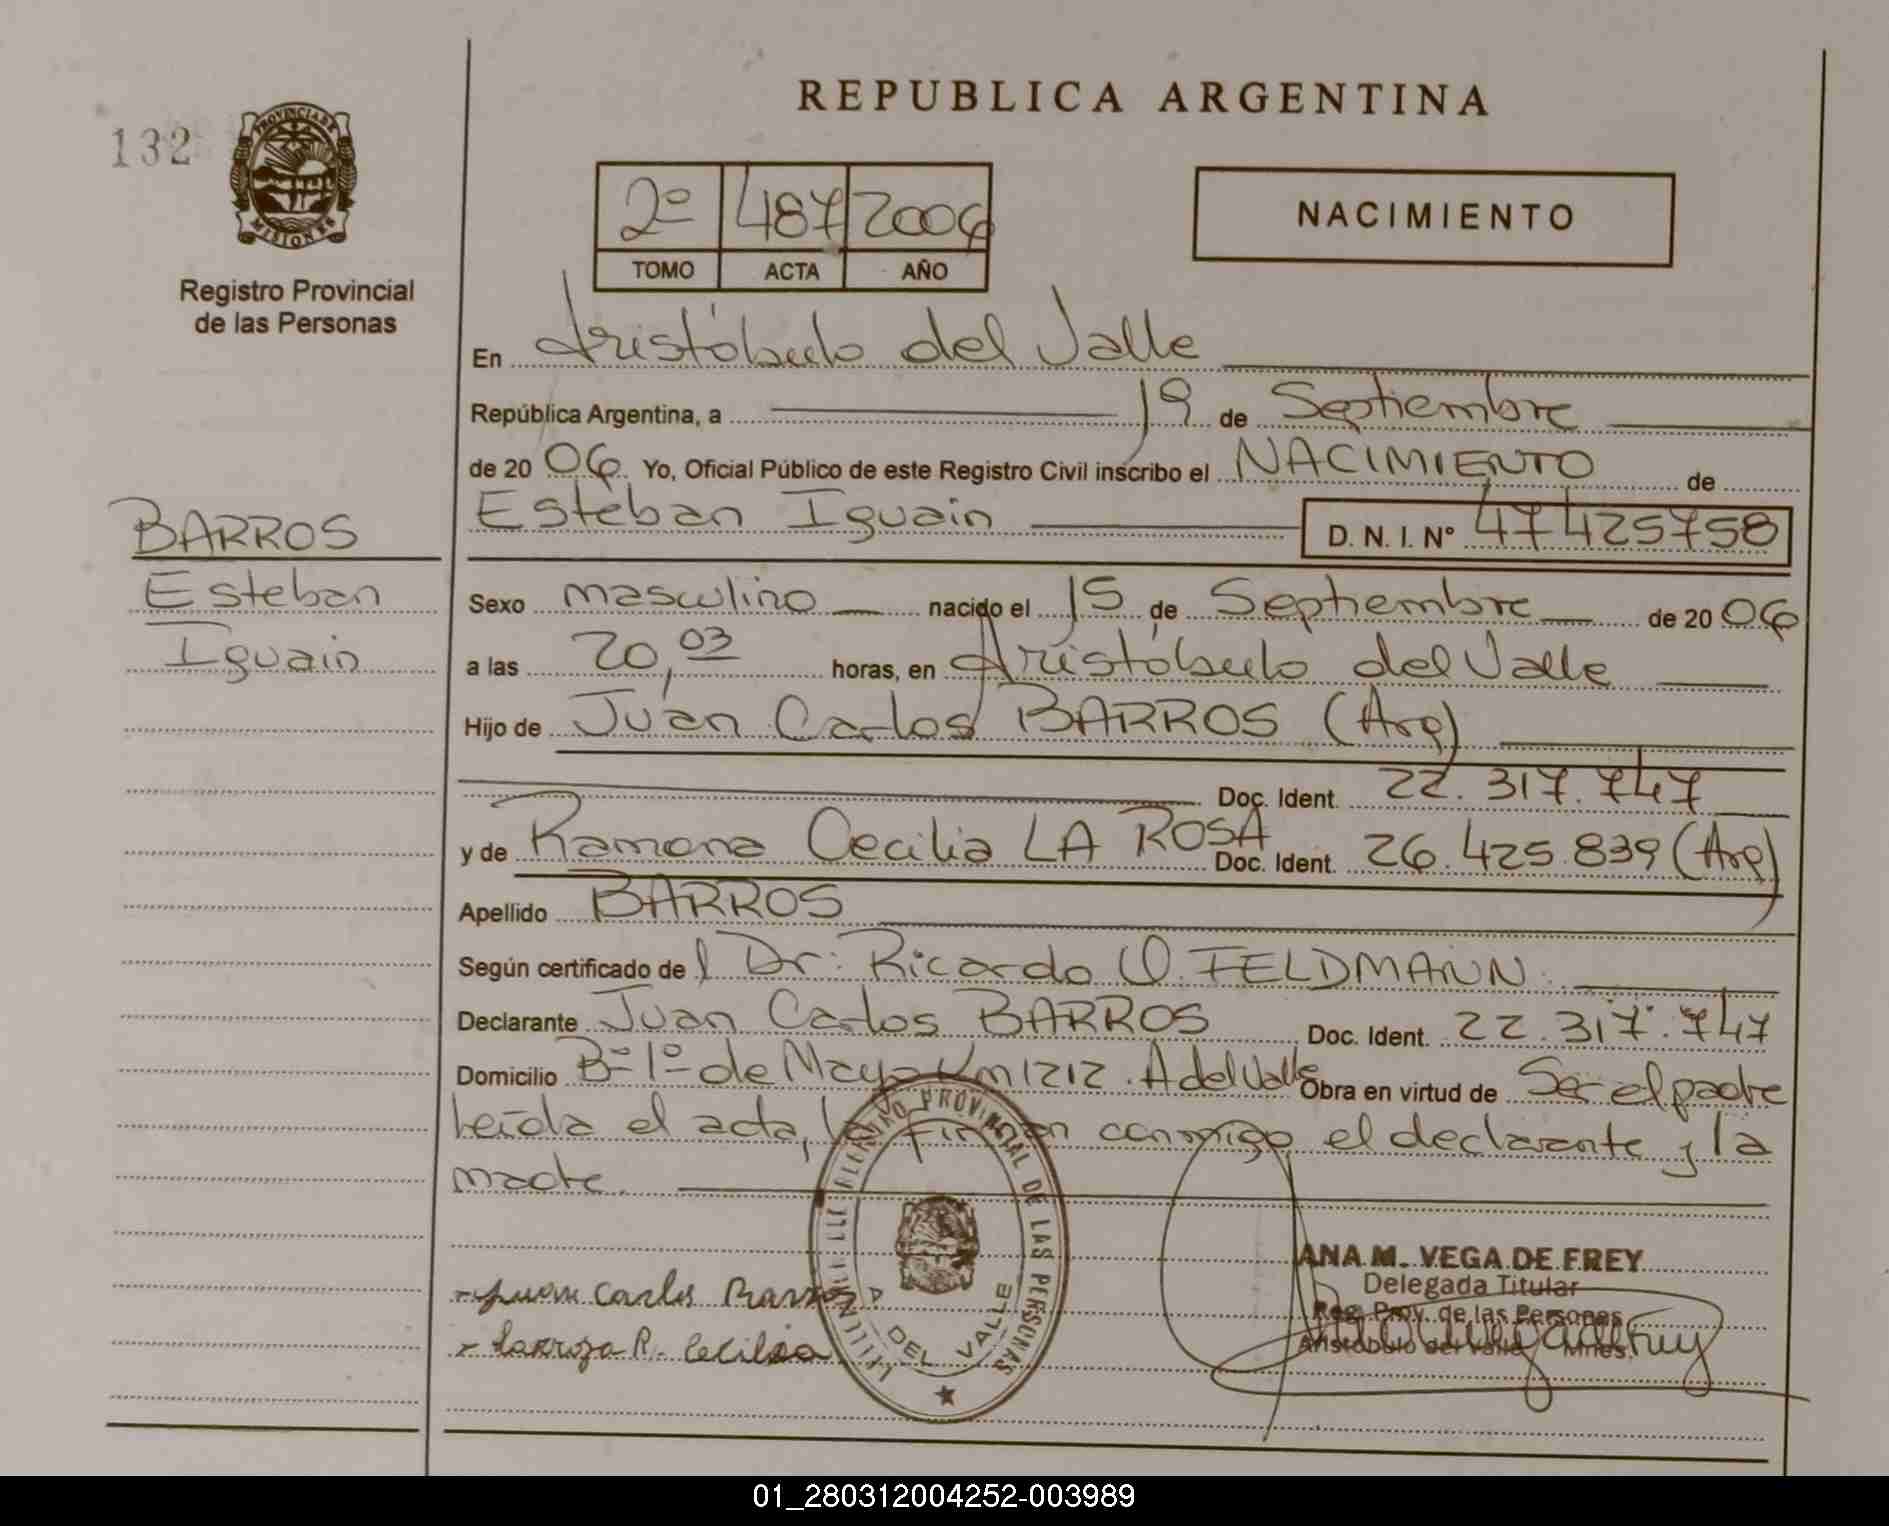 132
PROVINCIA DE
MISIONES
Registro Provincial
de las Personas
REPUBLICA ARGENTINA
2º 487 2006
TOMO ACTA AÑO
NACIMIENTO
En Aristóbulo del Valle
República Argentina, a 19 de Septiembre
de 20 06 Yo, Oficial Público de este Registro Civil inscribo el NACIMIENTO de
Esteban Iguain D. N. I. Nº 47425758
BARROS
Esteban
Iguain
Sexo masculino nacido el 15 de Septiembre de 20 06
a las 20,03 horas, en Aristóbulo del Valle
Hijo de Juan Carlos BARROS (Arg)
Doc. Ident. 22.317.747
y de Ramona Cecilia LA ROSA Doc. Ident. 26.425.839 (Arg)
Apellido BARROS
Según certificado del Dr: Ricardo O. FELDMANN.
Declarante Juan Carlos BARROS Doc. Ident. 22.317.747
Domicilio Bº 1º de Mayo Km 1212. A del Valle Obra en virtud de Ser el padre
Leída el acta, la firman conmigo el declarante y la
madre.
PROVINCIAL DE LAS PERSONAS
DEL VALLE
Juan Carlos Barros
Larroza R. Cecilia
ANA M. VEGA DE FREY
Delegada Titular
Reg. Prov. de las Personas
Aristóbulo del Valle Mnes.
01_280312004252-003989